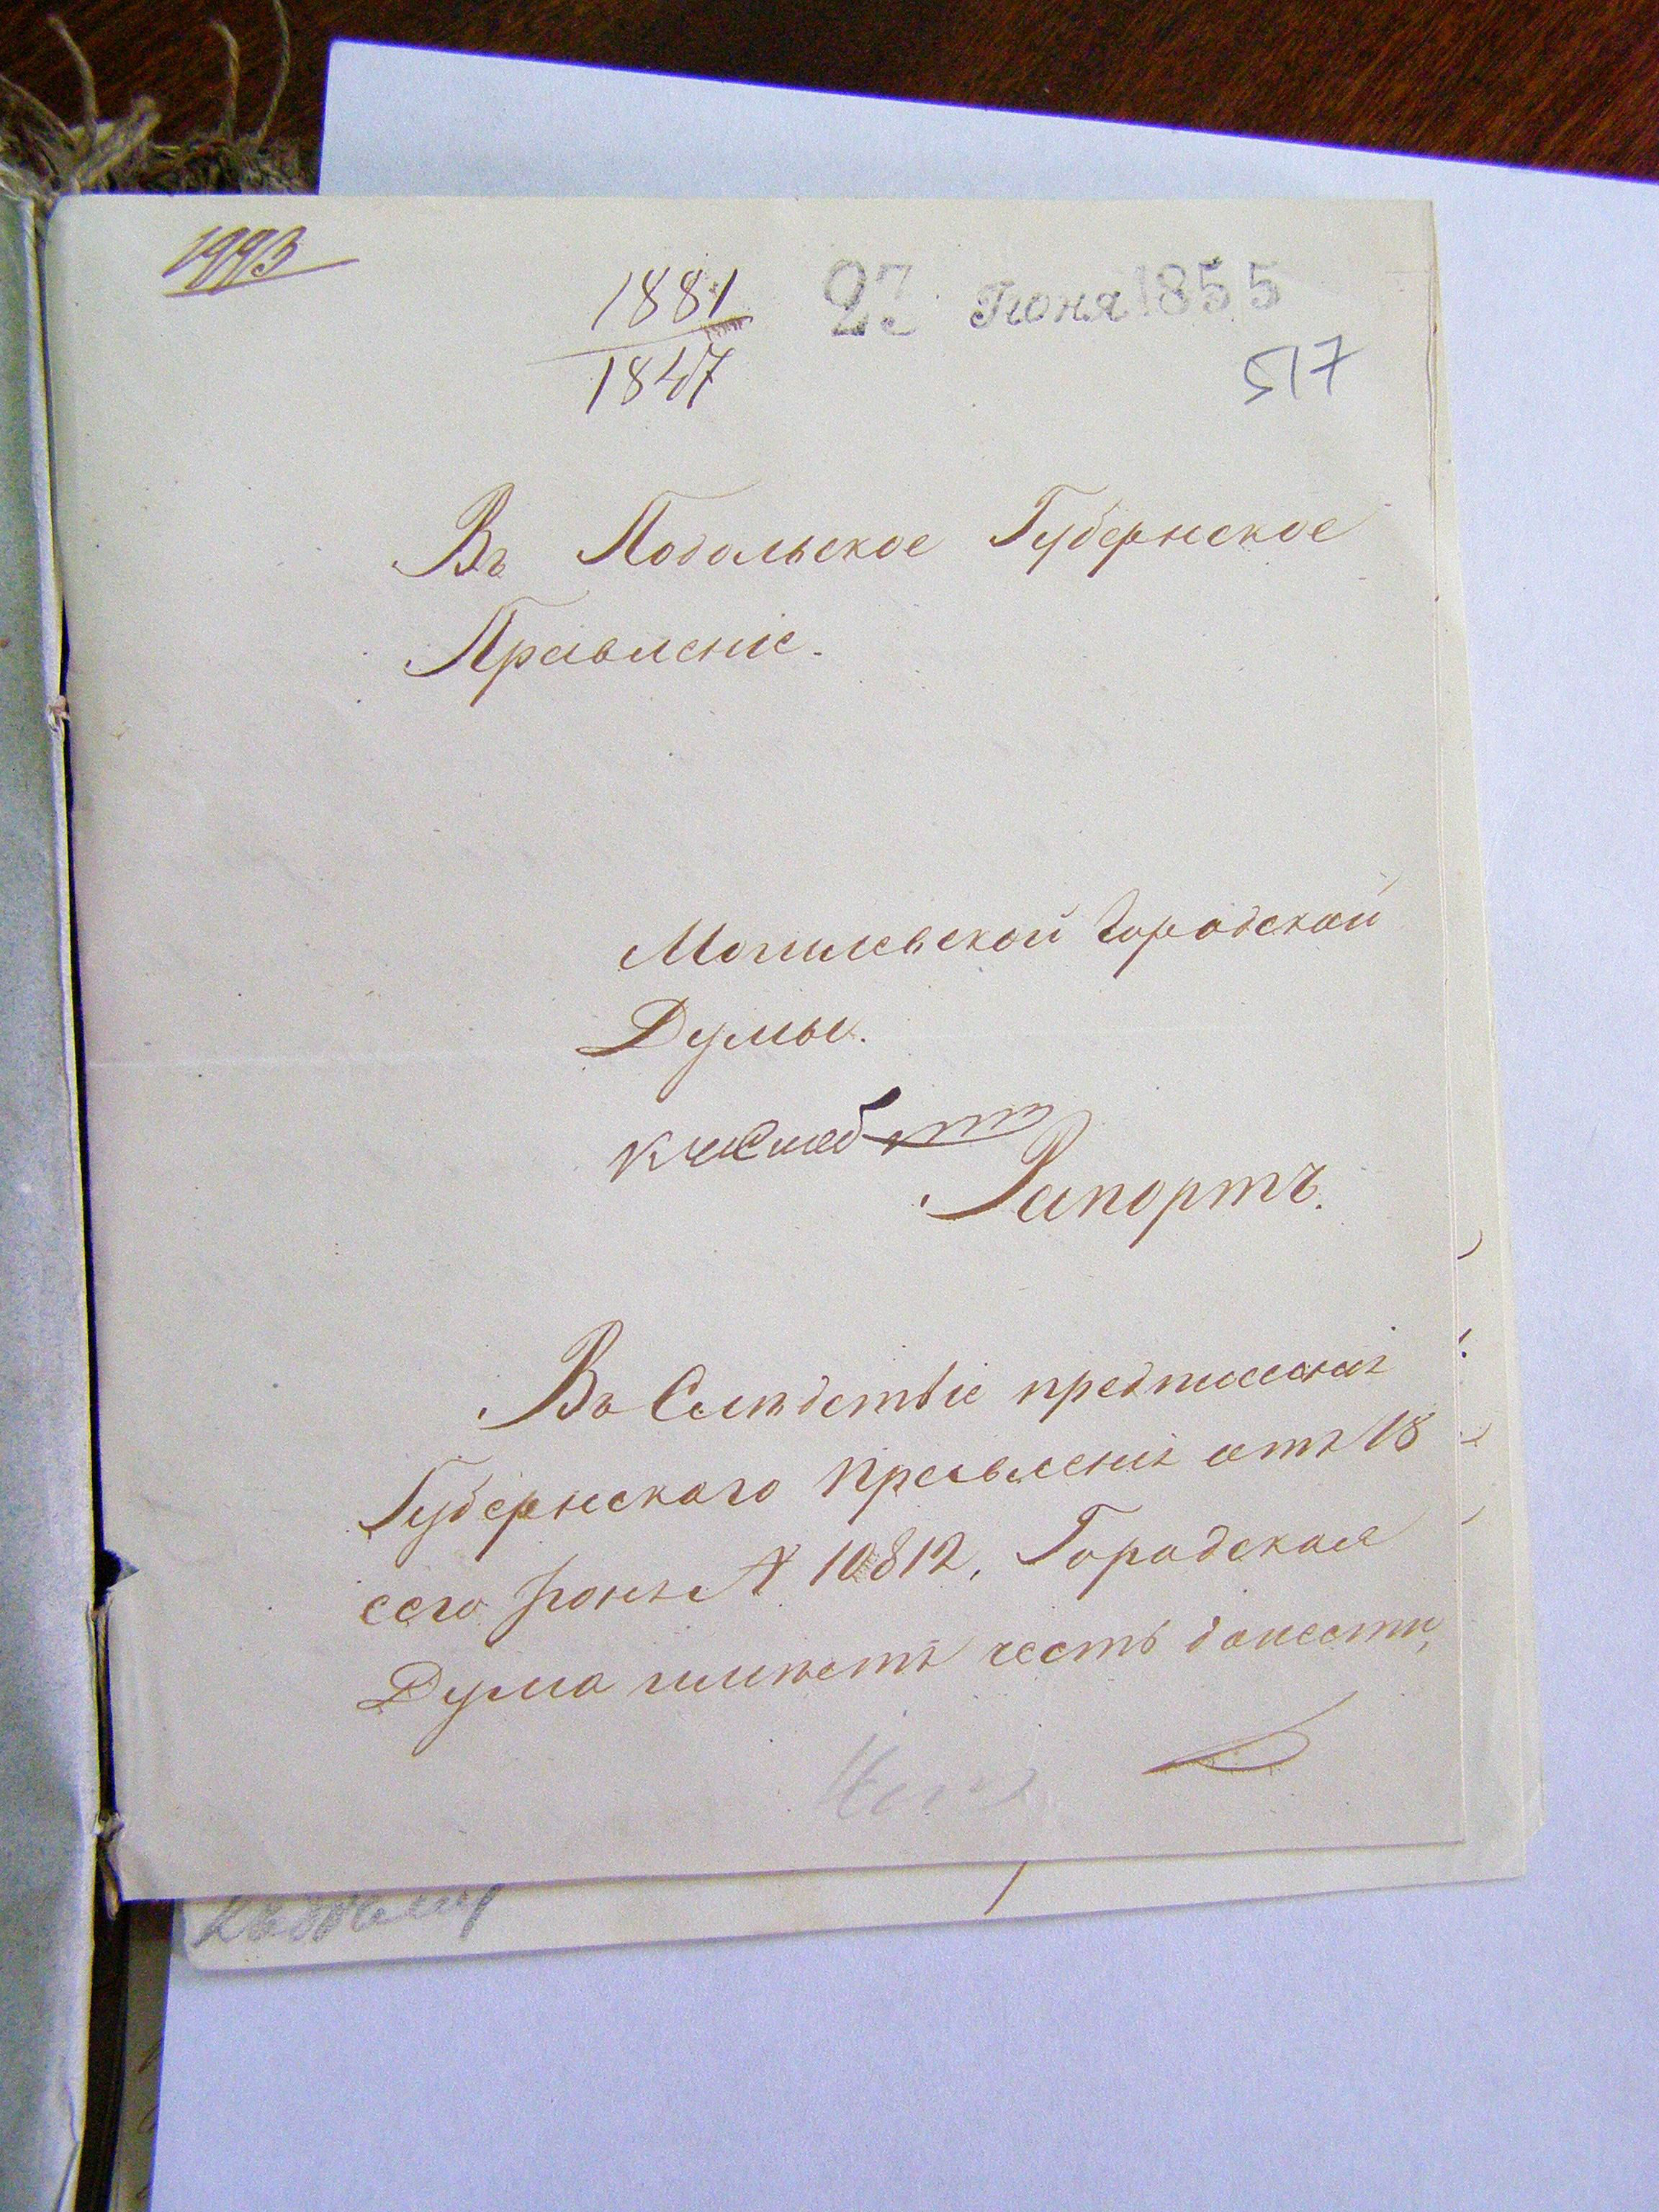 1993
1881
1847
Іюня 1855
517
Въ Подольское Губернское
Правленіе.
Могилевской Городской
Думы.
Рапортъ.
Въ Слѣдствіе предписанія
Губернскаго Правленія отъ 18
сего Іюня № 10812, Городская
Дума имѣетъ честь донести,